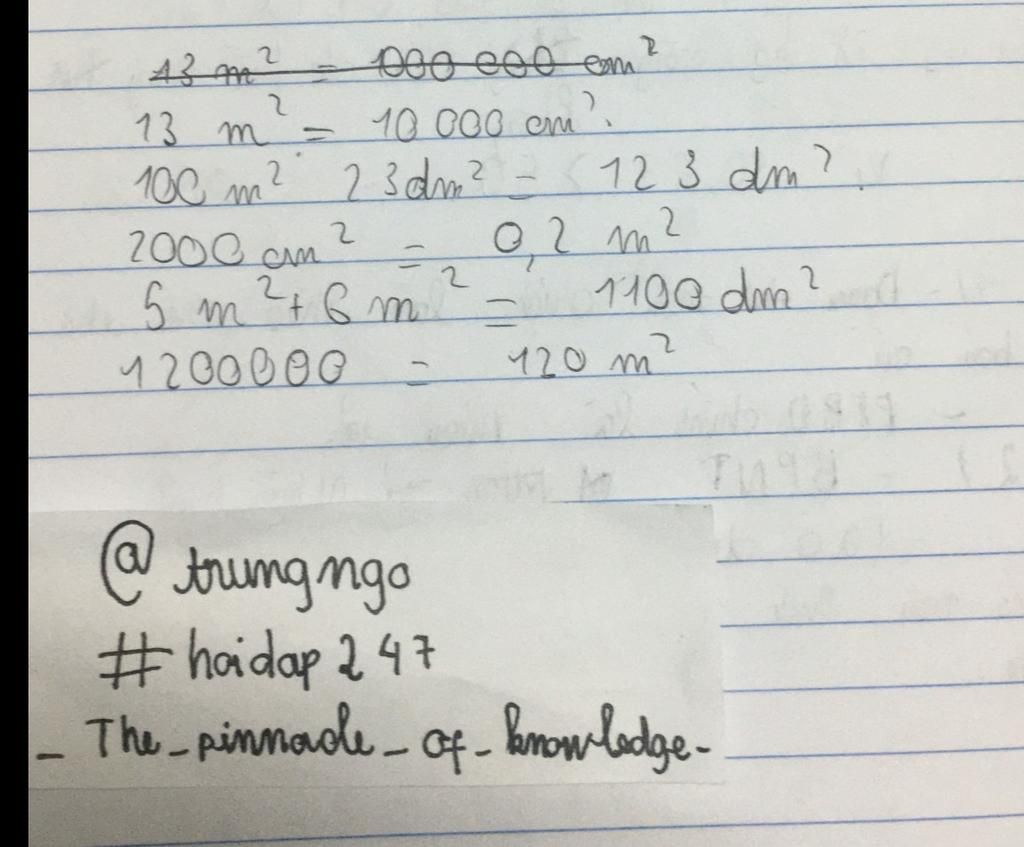 13 m² = 1000 000 cm²
13 m² = 10 000 cm².
100 m² 23dm² = 123 dm².
2000 cm² = 0,2 m²
5 m² + 6 m² = 1100 dm²
1200000 = 120 m²
@ trungngo
# hoidap 247
_ The _ pinnacle _ of _ knowledge _